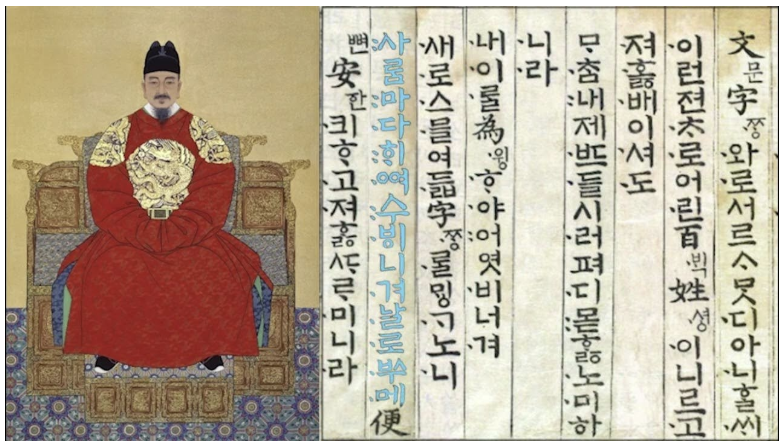 文문字ᄍᆞᆼ·와·로서르ᄉᆞᄆᆞᆺ·디아·니ᄒᆞᆯ·ᄊᆡ
·이런젼·ᄎᆞ·로어·린百·ᄇᆡᆨ姓·셩·이니르·고
·져·ᄒᆞᇙ·배이·셔·도
ᄆᆞ·ᄎᆞᆷ:내제·ᄠᅳ·들시·러펴·디:몯ᄒᆞᇙ·노·미하
니·라
·내·이·ᄅᆞᆯ為·윙·ᄒᆞ·야:어엿·비너·겨
·새·로·스·믈여·듧字·ᄍᆞᆼ·ᄅᆞᆯᄆᆡᇰ·ᄀᆞ노·니
:사ᄅᆞᆷ:마·다:ᄒᆡ·ᅇᅧ:수·ᄫᅵ니·겨·날·로·ᄡᅮ·메便
뼌安한·킈ᄒᆞ·고·져ᄒᆞᇙᄯᆞᄅᆞ·미니·라